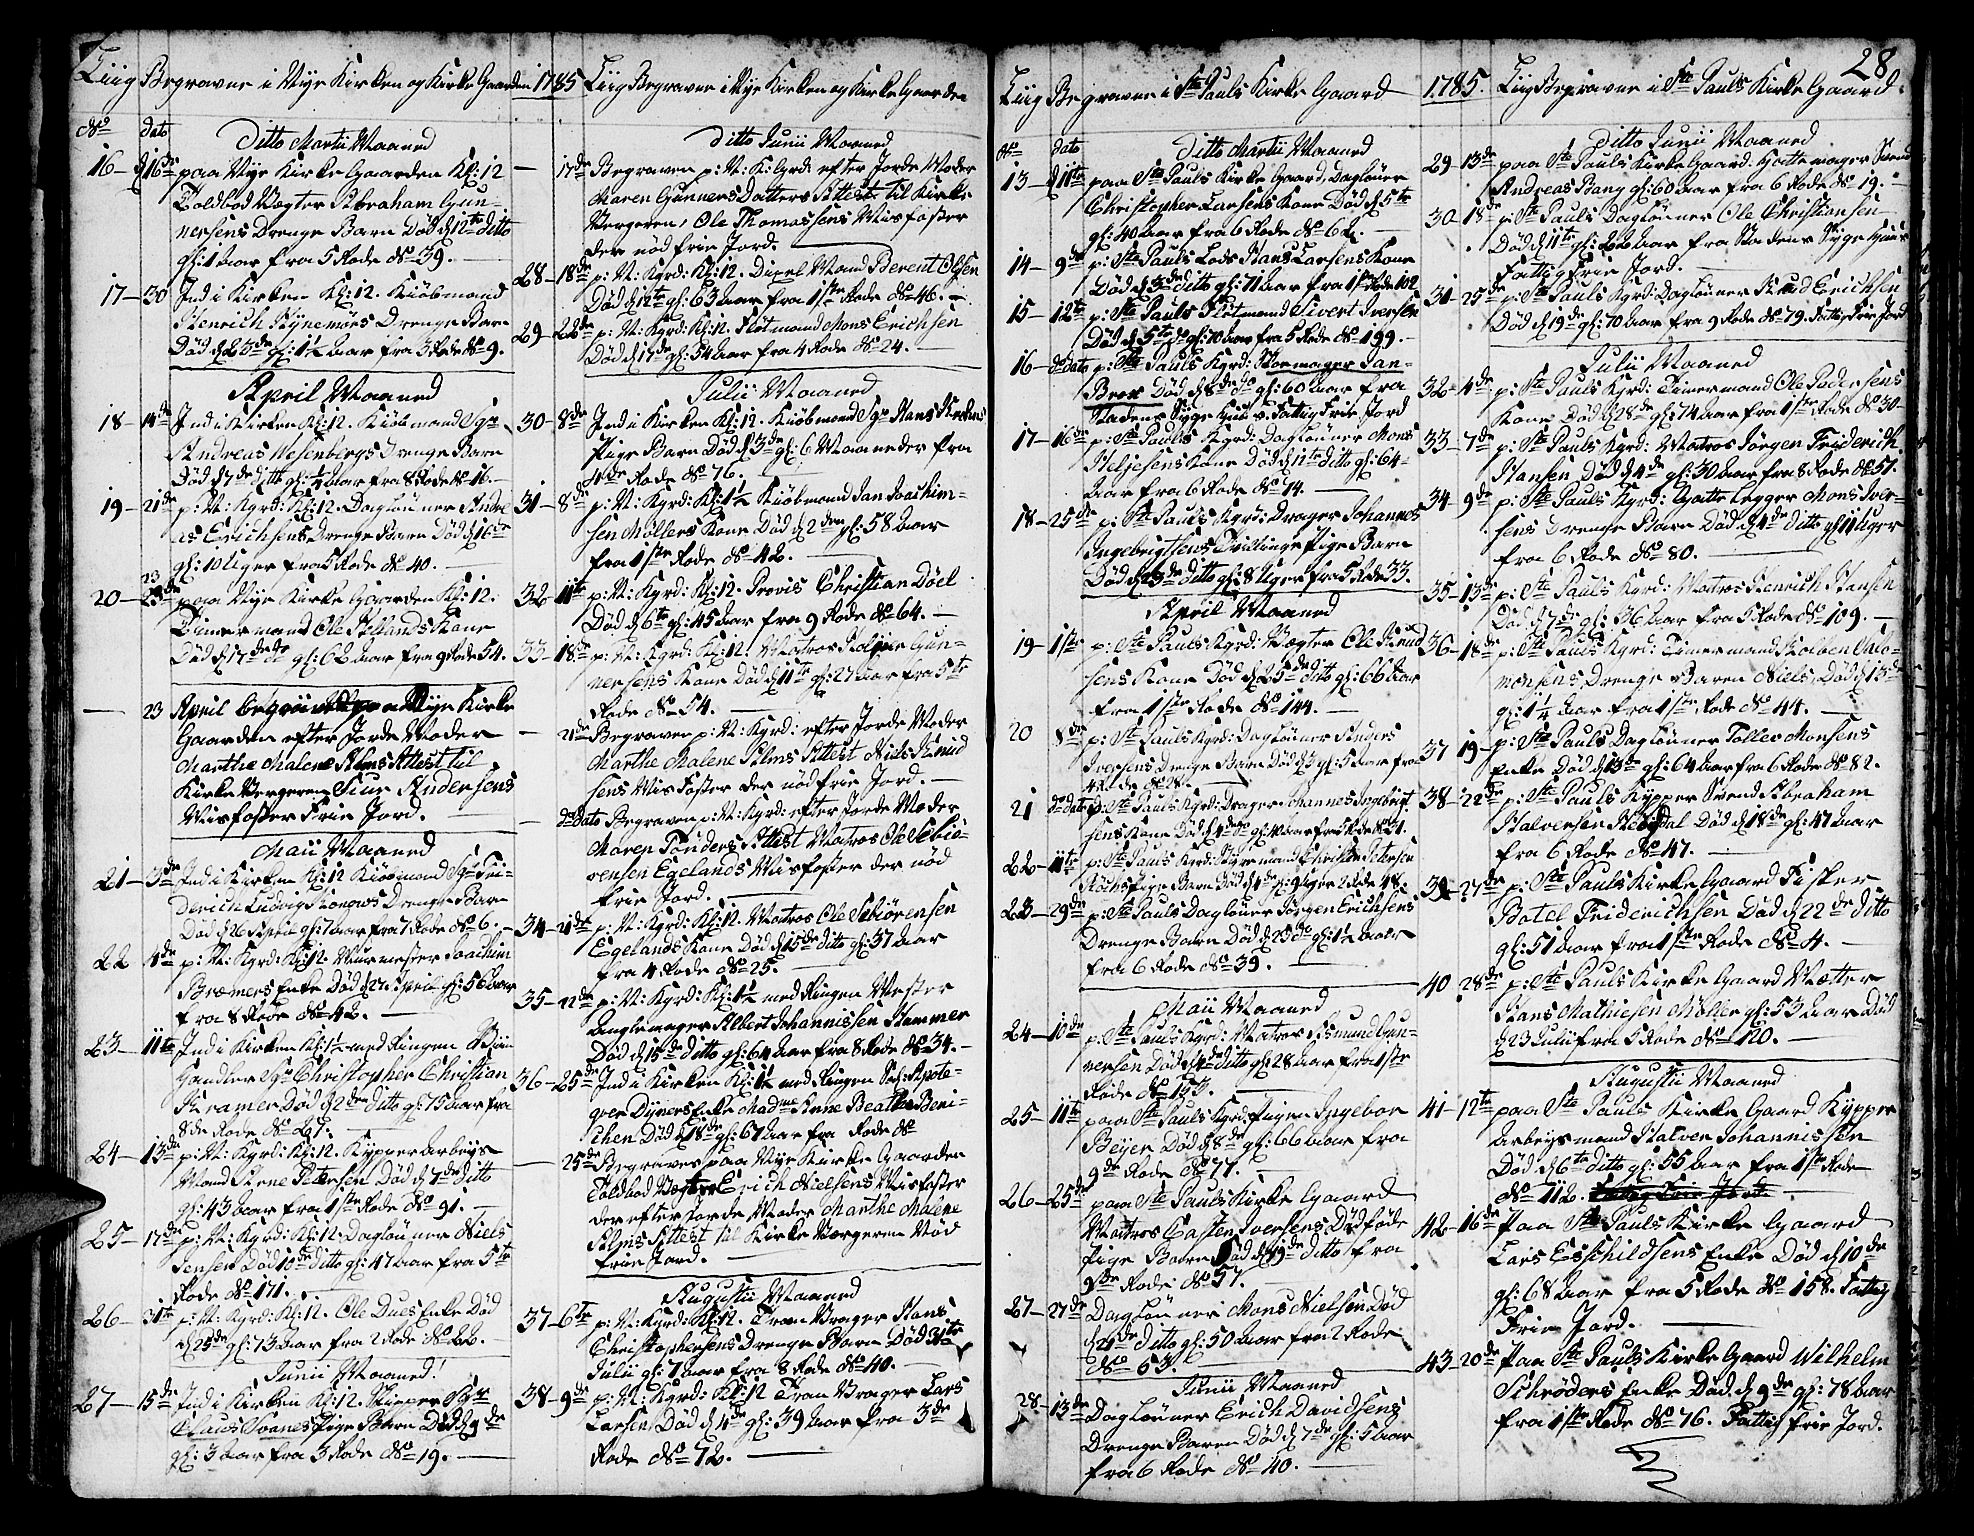 Liig Begravne i Nye Kirken og Kirke Gaarden 1785
No dato Ditto Martii Maaned
16 – d 16de paa Nye Kirke Gaarden Kl: 12
Toldbod Vogter Abraham Gun-
nersens Drenge Barn Død d 12te ditto
gl: 1 aar fra 5 Rode No 39.
17 – 30 Ind i Kirken Kl: 12. Kiöbmand
Henrich Drenge Barn
Død d 23de gl: 1½ aar fra 3 Rode No 9.
April Maaned
18 – 14de Ind i Kirken Kl: 12. Kiöbmand Sgr
Andreas Wesenbergs Drenge Barn
Død d 7de ditto gl: ¼ aar fra 8 Rode No 16.
19 – 21de p: N: Kgrd: Kl: 12. Dagløuner Andre
as Erichsens Drenge Barn Død d 16de
gl: 10 Uger fra 5 Rode No 40.
20 – 23 paa Nye Kirke Gaarden Kl: 12.
Timermand Ole Kone
Død d 17de do gl: 62 aar fra 9 Rode 54.
– 23 April paa Nye Kirke
Gaarden efter Jorde Moder
Marthe Malene Alms Attest til
Kirke Vergeren Siur Andersens
Misfoster Frie Jord.
Maii Maaned
21 – 3de Ind i Kirken Kl: 12 Kiöbmand Sgr Fri-
derich Ludvig Drenge Barn
Død d 26 April gl: 7 aar fra 7 Rode No 6.
22 4de p: N: Kgrd: Kl: 12. Muurmester Joachim
Bræmers Enke Død d 27 April gl: 56 aar
fra 8 Rode No 42.
23 – 11te Ind i Kirken Kl: 1½ med Ringen
Handler Sgr Christopher Christian
Kramer Død d 2den ditto gl: 75 aar fra
8de Rode No 27.
24 – 13de p: N: Kgrd: Kl: 12. Kypper Arbeys
Mand Arne Petersen Død d 7de ditto
gl: 43 aar fra 1ste Rode No 91.
25 – 17de p: N: Kgrd: Kl: 12. Dagløuner Niels
Jensen Død 10de ditto gl: 47 aar fra 5te
Rode No 171.
26 – 31te p: N: Kgrd: Kl: 12. Ole Dues Enke Død
d 25de gl: 73 aar fra 2 Rode No 22.
Junii Maaned!
27 – 15de Ind i Kirken Kl: 12. Skipper Sgr
Claus Svanes Pige Barn Død d 9de
gl: 3 aar fra 3 Rode No 19.
Liig Begravne i Nye Kirken og Kirke Gaarden
Ditto Junii Maaned
– 17de Begraven p: N: K: Grd: efter Jorde Moder
Maren Gunners Datters Attest til Kirke
Vergeren, Ole Thomassens Misfoster
der nöd frie Jord.
28 – 18de p: N: Kgrd: Kl: 12. Mand Berent Olsen
Død d 12te gl: 63 aar fra 1ste Rode No 46.
29 – 22de p: N: Kgrd: Kl: 12. Fløtmand Mons Erichsen
Død d 17de gl: 54 aar fra 4 Rode No 24.
Julii Maaned
30 – 8de Ind i Kirken Kl: 12. Kiöbmand Sgr Hans
Pige Barn Død d 3de gl: 6 Maaneder fra
Rode No 76.
31 – 8de p: N: Kgrd: Kl: 1½ Kiöbmand Jan Joachim-
sen Møllers Kone Død d 2den gl: 58 aar
fra 1ste Rode No 42.
32 11te p: N: Kgrd: Kl: 12. Provis Christian Döel
Død d 6te gl: 45 aar fra 9 Rode No 64.
33 – 18de p: N: Kgrd: Kl: 12. Matros Gun-
nersens Kone Død d 11te gl: 27 aar fra 5te
Rode No 54.
– 21de Begraven p: N: Kgrd: efter Jorde Moder
Marthe Malene Alms Attest Niels Knud
sens Mis Foster der nöd frie Jord.
do dato Begraven p: N: Kgrd: efter Jorde Moder
Maren Tønders Attest Matros Ole Sebiö-
rensen Egelands Misfoster der nöd
frie Jord.
34 – 21de p: N: Kgrd: Kl: 12. Matros Ole Sebiörensen
Egelands Kone Død d 15de ditto gl: 37 aar
fra 4 Rode No 25.
35 – 22de p: N: Kgrd: Kl: 1½ med Ringen Mester
Anglemager Albert Johannissen Hammer
Død d 15de ditto gl: 64 aar fra 8 Rode No 34.
36 – 25de Ind i Kirken Kl: 1½ med Ringen Sal: Apote-
qver Dyners Enke Madme Anne Beathe Beni-
chen Død d 18de gl: 67 aar fra Rode No
25de Begraves paa Nye Kirke Gaarden
Toldbod Vogter Erich Nielsens Misfoster
der efter Jorde Moder Marthe Malene
Alms Attest til Kirke Vergeren Nöd
frie Jord.
Augustii Maaned
37 – 6te p: N: Kgrd: Kl: 12. Tran Vrager Hans
Christophersens Drenge Barn Död 31te
Julii gl: 7 aar fra 8 Rode No 40.
38 – 9de p: N: Kgrd: Kl: 12 Tran Vrager Lars
Larsen, Død d 4de gl: 39 aar fra 3de
Rode No 72.
Liig Begravne i Ste Pauls Kirke Gaard 1785.
No dato Ditto Martii Maaned
13 – d 11te paa Ste Pauls Kirke Gaard, Dagløuner
Christopher Larsens Kone Død d 5te
gl: 40 aar fra 6 Rode No 62.
14 – 9de p: Ste Pauls Lods Hans Larsens Kone
Død d 3de ditto gl: 71 aar fra 1ste Rode 102
15 – 12te p: Ste Pauls Fløtmand Sivert Iversen
Død d 5te do gl: 70 aar fra 5 Rode No 199.
16 – do dato p: Ste Pauls Kgrd: Skoemager Jan-
Brer Død d 8de do gl: 60 aar fra
Stadens Syge Huus p: Fattig Frie Jord
17 – 16de p: Ste Pauls Kgrd: Dagløuner Mons
Heljesens Kone Død d 11te ditto gl: 64
aar fra 6 Rode No 14.
18 – 25de p: Ste Pauls Kgrd: Drager Johannes
Ingebrigtsens Tvillinge Pige Barn
Død d 23de ditto gl: 8 Uger fra 5 Rode 33.
April Maaned
19 – 1ste p: Ste Pauls Kgrd: Vægter Ole Knud
sens Kone Død d 25de ditto gl: 66 aar
fra 1ste Rode No 144.
20 8de p: Ste Pauls Kgrd: Dagløuner Anders
Iversens Drenge Barn Død d 3 gl: 5 aar fra
4 Rode No 24.
21 do dato p: Ste Pauls Kgrd: Drager Johannes Ingebrigt
sens Kone Død d 4de gl: 40 aar fra 5 Rode No 21.
22 – 11te p: Ste Pauls Kgrd: Styrmand Christen Petersen
Pige Barn Død d 4de gl: 9 Uger 2 Rode 48.
23 – 29de p: Ste Pauls Dagløuner Jørgen Erichsens
Drenge Barn Død d 23 do gl: 1½ aar
fra 6 Rode No 39.
Maii Maaned
24 – 10de p: Ste Pauls Kgrd: Matros Asmund Gun-
nersen Død d 4de ditto gl: 28 aar fra 1ste
Rode No 153.
25 – 11te paa Ste Pauls Kgrd: Pigen Ingebor
Beyer Død d 8de gl: 66 aar fra
9de Rode No 77.
26 – 25de paa Ste Pauls Kirke Gaard
Matros Casten Iversens Dødføde
Pige Barn Død d 19de ditto fra
9de Rode: No 57.
27 – 27de Dagløuner Mons Nielsen Død
d 21de ditto gl: 50 aar fra 2 Rode
No 63.
Junii Maaned
28 – 13de Dagløuner Erich Davidsens
Drenge Baren Død d 7de gl: 5 aar
fra 6 Rode No 40.
28
Liig Begravne i Ste Pauls Kirke Gaard.
Ditto Junii Maaned
29 – 13de paa Ste Pauls Kirke Gaard. Hattemager Svend
Andreas Bang gl: 60 aar fra 6 Rode No 19.
30 – 18de p: Ste Pauls Dagløuner Ole Christiansen
Død d 11te gl: 22 aar fra Stadens Syge Huus
Fattig Frie Jord.
31 – 25de p: Ste Pauls Kgrd: Dagløuner Knud Erichsen
Død d 19de gl: 70 aar fra 9 Rode No 79. Fattig Frie Jord
Julii Maaned
32 – 4de p: Ste Pauls Kgrd: Timermand Ole Pedersens
Kone Død d 28de gl: 74 aar fra 1ste Rode No 30
33 – 7de p: Ste Pauls Kgrd: Matros Jörgen Friderich
Hansen Død d 4de gl: 30 aar fra 8 Rode No 57.
34 9de p: Ste Pauls Kgrd: Gatte Legger Mons Iver-
sens Drenge Barn Død d 4de ditto gl: 11 Uger
fra 6 Rode No 80.
35 – 13de p: Ste Pauls Kgrd: Matros Henrich Hansen
Død d 7de gl: 36 aar fra 5 Rode No 109.
36 – 18de p: Ste Pauls Kgrd: Timermand Torben Salo-
monsens Drenge Baren Niels, Død d 13de
gl: 1¼ aar fra 1ste Rode No 44.
37 19 – p: Ste Pauls Dagløuner Toller Monsens
Enke Død d 13de gl: 64 aar fra 6 Rode No 82.
38 – 22de p: Ste Pauls Kypper Svend Abraham
Halversen Død d 18de gl: 47 aar
fra 6 Rode No 47.
39 – 27de p: Ste Pauls Kirke Gaard Fisker
Botel Friderichsen Død d 22de ditto
gl: 51 aar fra 1ste Rode No 4.
40 28de p: Ste Pauls Kirke Gaard Vægter
Hans Mathiesen Møller gl: 53 aar Død
d 23 Julii fra 5 Rode No 120.
Augustii Maaned
41 – 12te paa Ste Pauls Kirke Gaard Kypper
Arbeysmand Halvor Johannissen
Død d 6te ditto gl: 55 aar fra 1ste Rode
No 112. Fattig Frie Jord
42 – 16de Paa Ste Pauls Kirke Gaard
Lars Esschildsens Enke Død d 10de
gl: 68 aar fra 5 Rode No 158. Fattig
Frie Jord.
43 – 20de Paa Ste Pauls Kirke Gaard Wilhelm
Schrøders Enke Død d 9de gl: 78 aar
fra 1ste Rode No 76. Fattig Frie Jord.